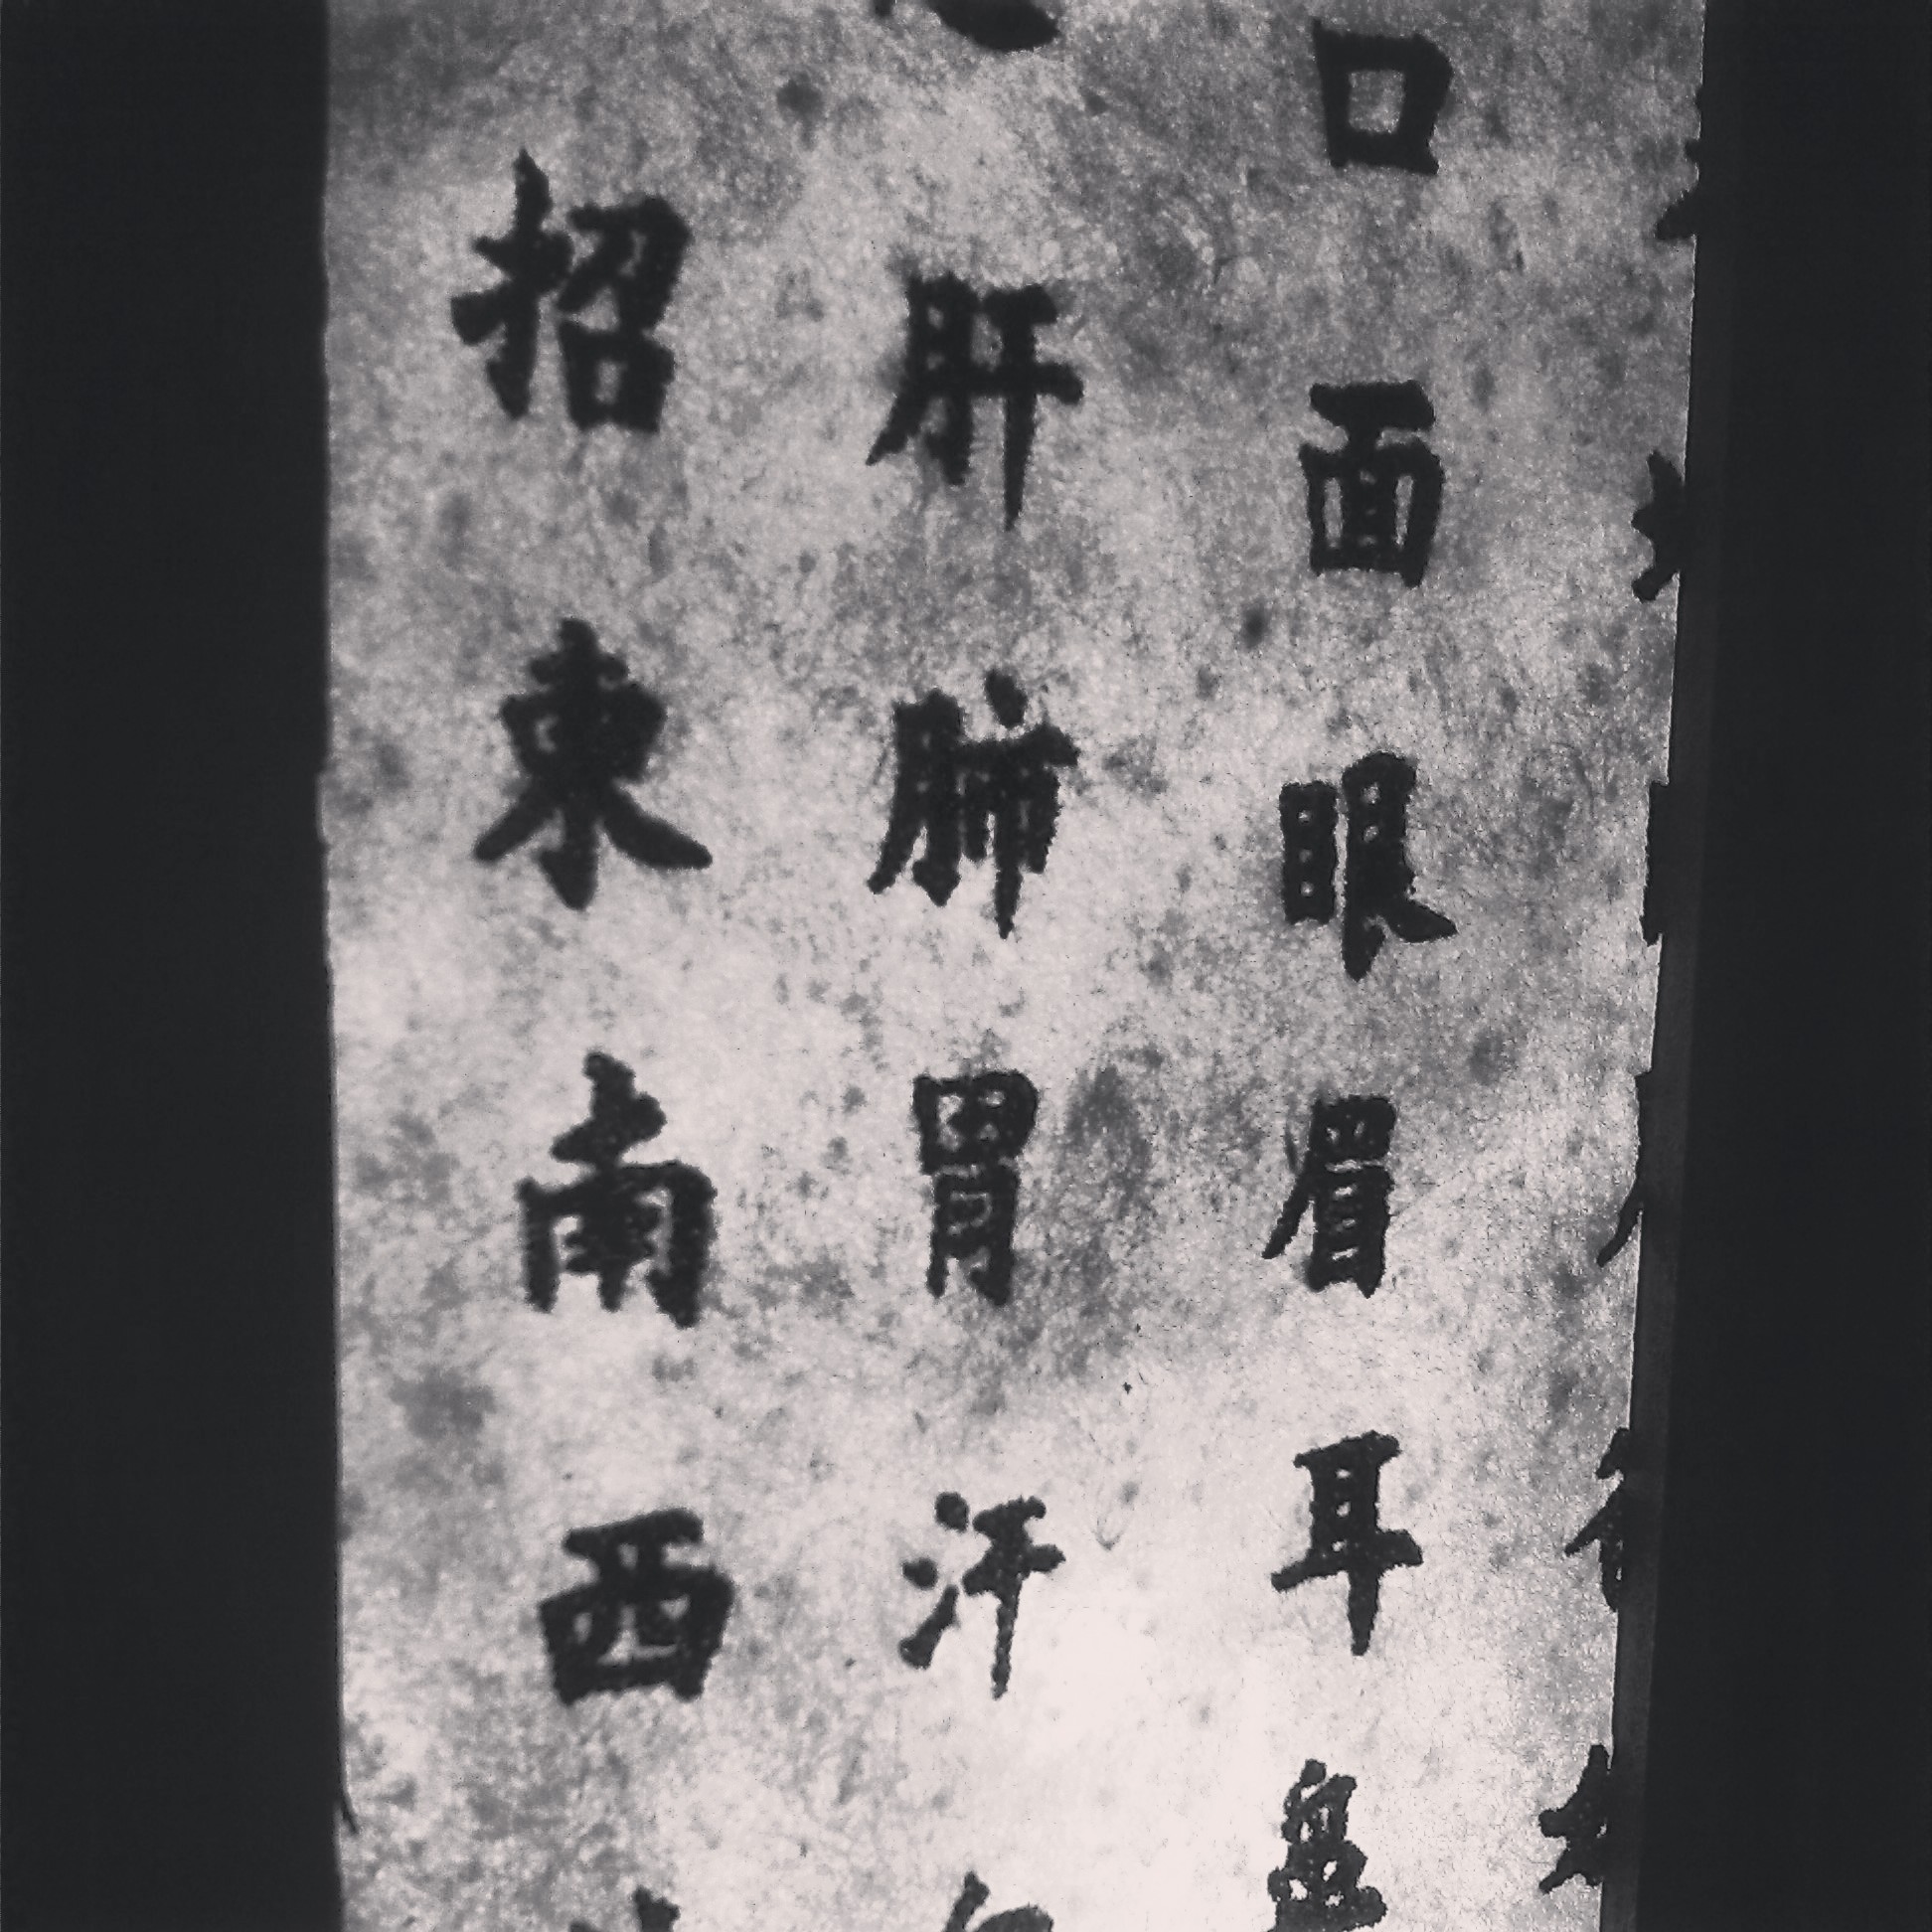 口面眼眉耳盤
肝肺胃汗
招東南西